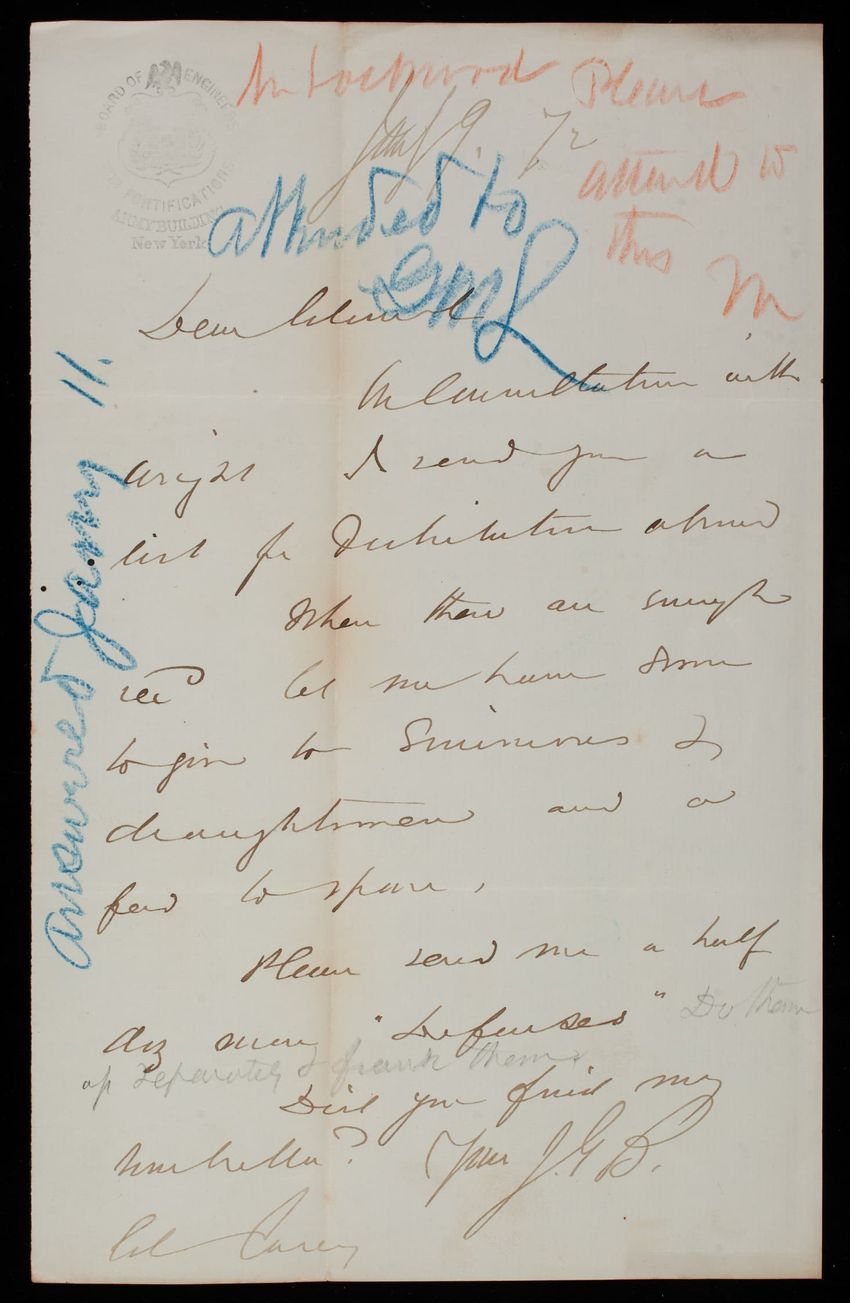 BOARD OF ENGINEERS
FOR FORTIFICATIONS
ARMY BUILDING
New York
Mr Lockwood Please
attend to
this
Jany 9. 72
attended to
Dear Colonel
In Consultation with
Wright I send you a
list for Distribution abroad
When there are enough
recd let me have some
to give to &
draughtsmen and a
few to spare.
Please send me a half
doz more "Defenses" Do them
up separately & frank them
Did you find my
umbrella? Yours J. G. B.
Col Casey
answered Janry 11.